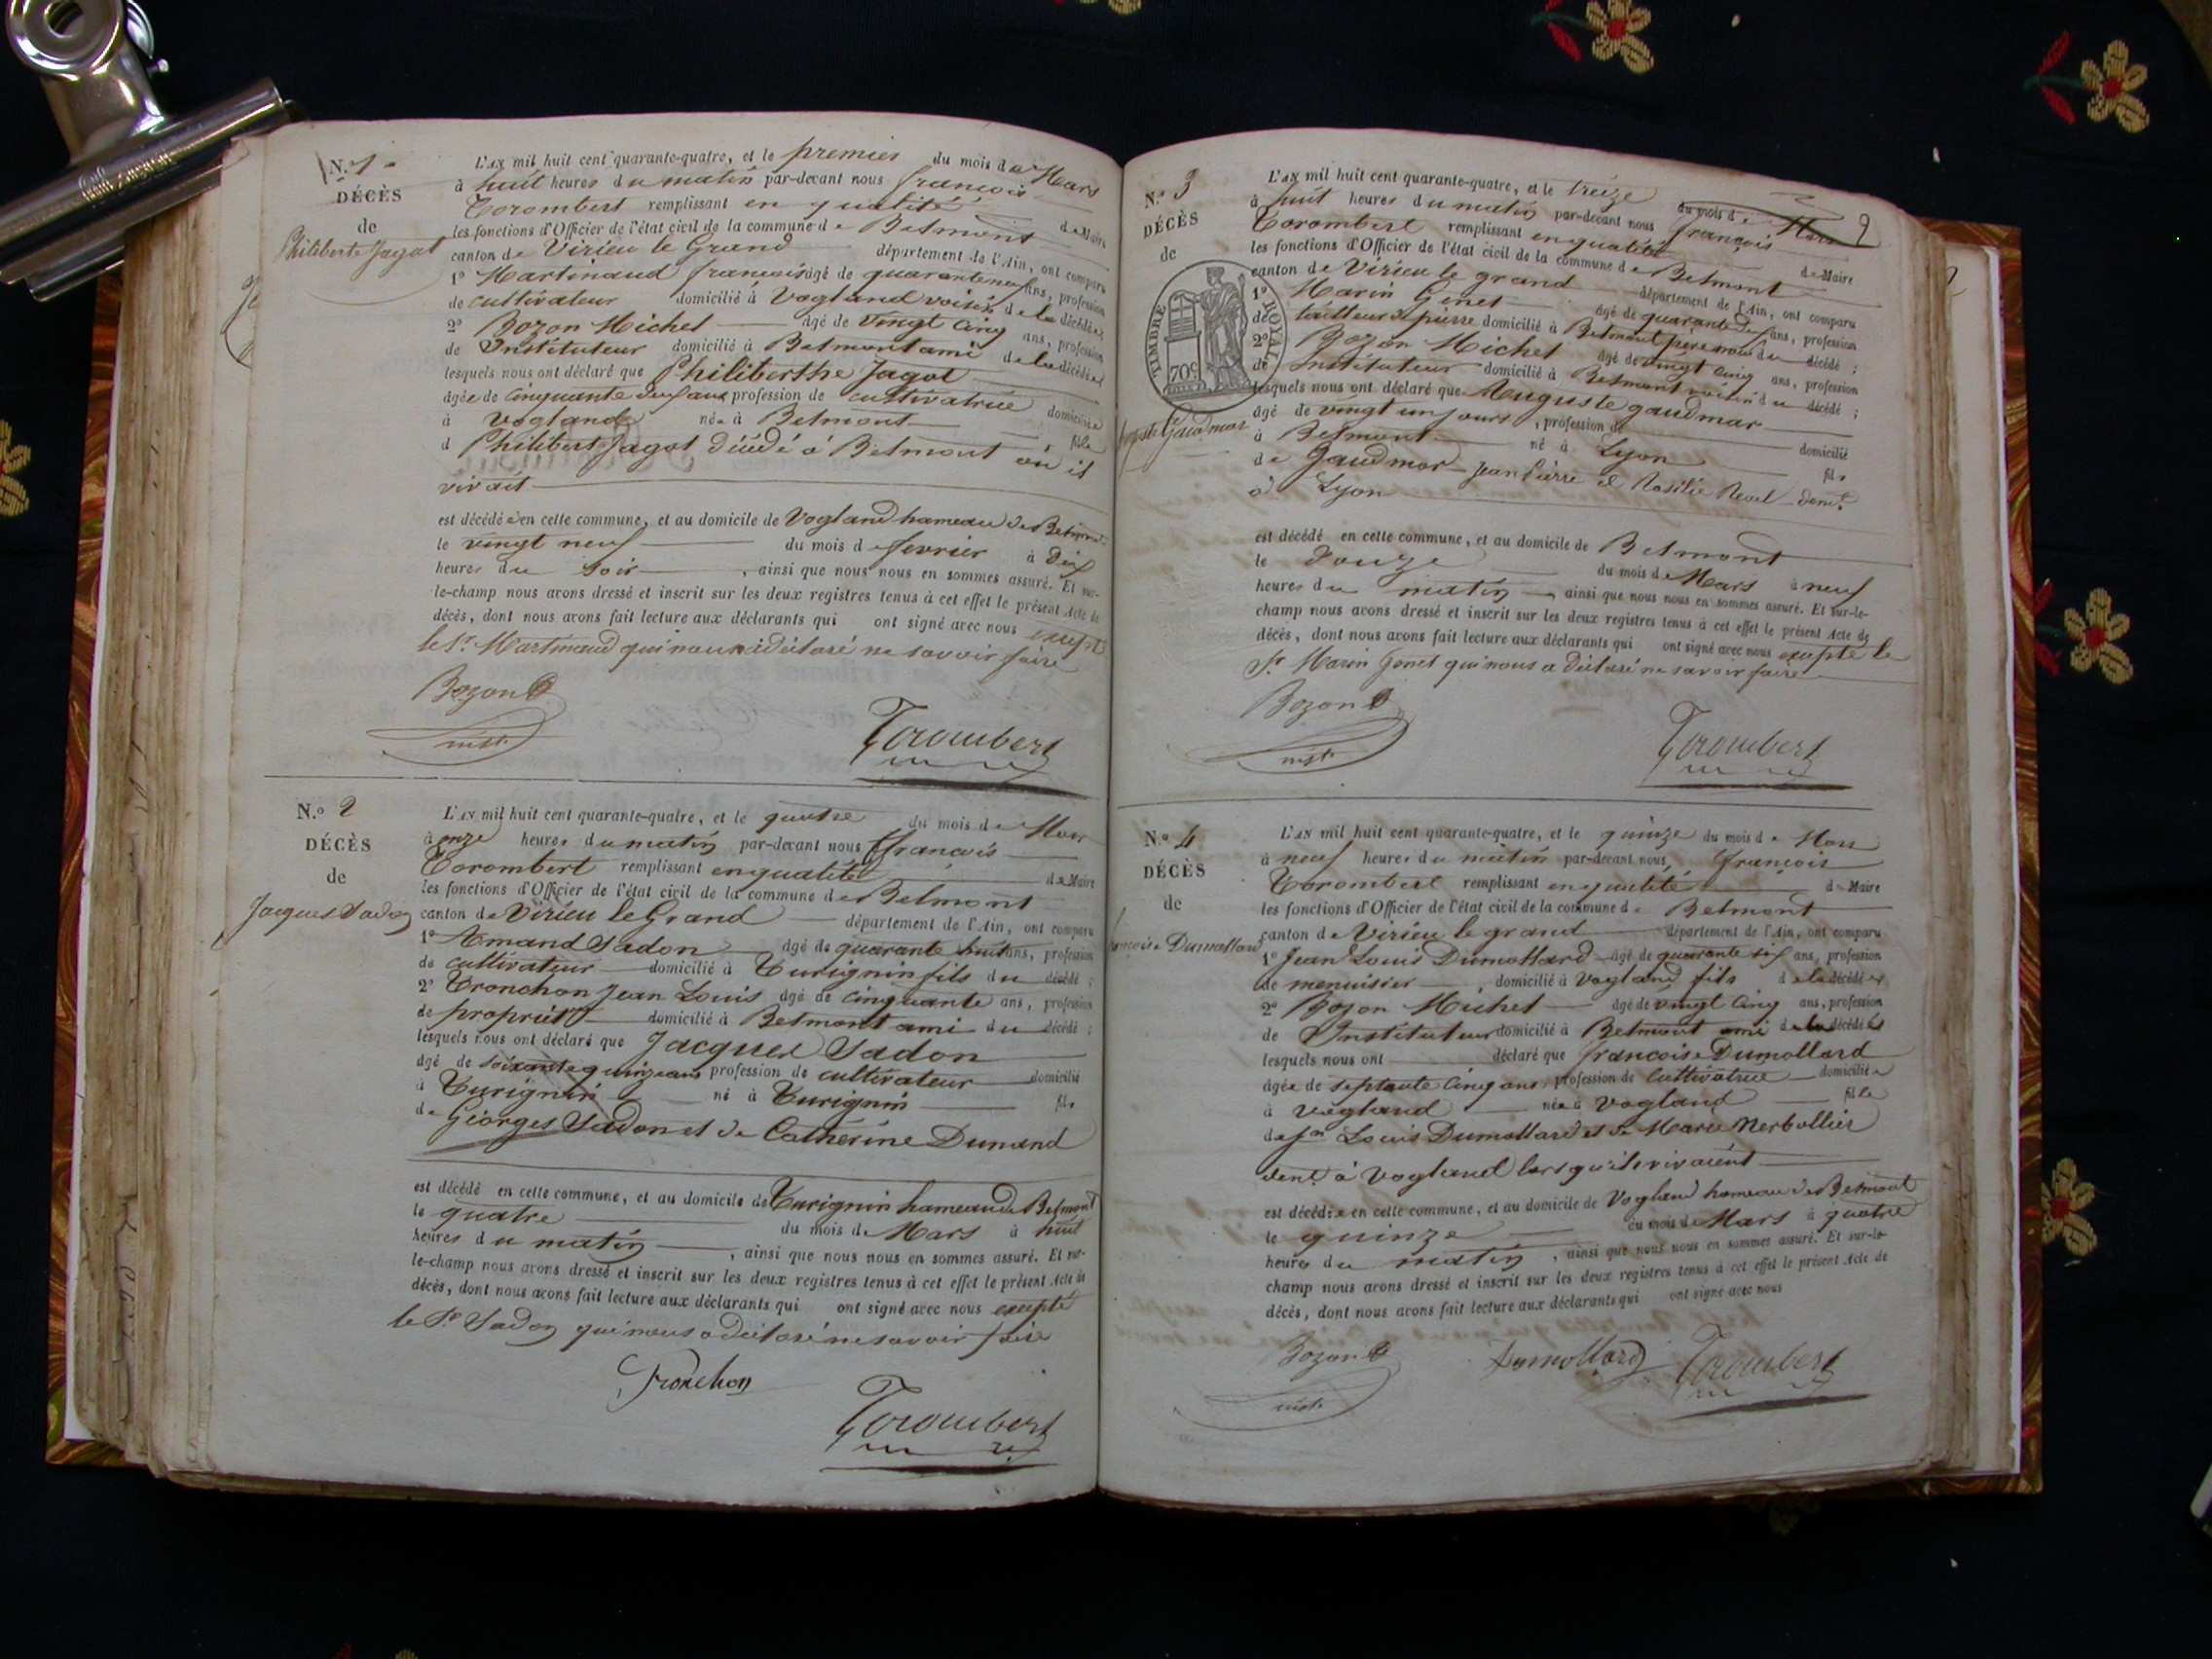 N.o 1
DÉCÈS
de
Philiberte Jagot
L'AN mil huit cent quarante-quatre, et le premier du mois de Mars
à huit heures du matin par-devant nous françois
Corombert remplissant en qualité de Maire
les fonctions d'Officier de l'état civil de la commune de Belmont
canton de Virieu le Grand département de l'Ain, ont comparu
1o Martinaud françois âgé de quarante neuf ans, profession
de cultivateur domicilié à Vogland voisin de la décédée
2o Bozon Michel âgé de vingt cinq ans, profession
de Instituteur domicilié à Belmont ami de la décédée
lesquels nous ont déclaré que Philiberthe Jagot
âgée de cinquante deux ans profession de cultivatrice domiciliée
à Vogland née à Belmont fille
d Philibert Jagot Décédé à Belmont où il
vivait
est décédée en cette commune, et au domicile de Vogland hameau de Belmont
le vingt neuf du mois de fevrier à Dix
heures du soir, ainsi que nous nous en sommes assuré. Et sur-
le-champ nous avons dressé et inscrit sur les deux registres tenus à cet effet le présent Acte de
décès, dont nous avons fait lecture aux déclarants qui ont signé avec nous excepté
le Sr. Martinaud qui nous a déclaré ne savoir faire
Bozon
inst.
Corombert
N.o 2
DÉCÈS
de
Jacques Sadon
L'AN mil huit cent quarante-quatre, et le quatre du mois de Mars
à onze heures du matin par-devant nous françois
Corombert remplissant en qualité de Maire
les fonctions d'Officier de l'état civil de la commune de Belmont
canton de Virieu le Grand département de l'Ain, ont comparu
1o Amand Sadon âgé de quarante huit ans, profession
de cultivateur domicilié à Curignin fils du décédé ;
2o Tronchon Jean Louis âgé de cinquante ans, profession
de propriét.re domicilié à Belmont ami du décédé ;
lesquels nous ont déclaré que Jacques Sadon
âgé de soixante quinze ans profession de cultivateur domicilié
à Curignin né à Curignin fils
de Georges Sadon et de Catherine Dunand
est décédé en cette commune, et au domicile de Curignin hameau de Belmont
le quatre du mois de Mars à huit
heures du matin, ainsi que nous nous en sommes assuré. Et sur-
le-champ nous avons dressé et inscrit sur les deux registres tenus à cet effet le présent Acte de
décès, dont nous avons fait lecture aux déclarants qui ont signé avec nous excepté
le Sr Sadon qui nous a déclaré ne savoir faire
Tronchon
Corombert
9
N.o 3
DÉCÈS
de
TIMBRE ROYAL
70c
Gaudmar
L'AN mil huit cent quarante-quatre, et le treize du mois de Mars
à huit heures du matin par-devant nous françois
Corombert remplissant en qualité de Maire
les fonctions d'Officier de l'état civil de la commune de Belmont
canton de Virieu le grand département de l'Ain, ont comparu
1o Marin Genet âgé de quarante deux ans, profession
de tailleur de pierre domicilié à Belmont père nour. du décédé ;
2o Bozon Michel âgé de vingt cinq ans, profession
de Instituteur domicilié à Belmont voisin du décédé ;
lesquels nous ont déclaré que Auguste gaudmar
âgé de vingt un jours, profession de domicilié
à Belmont né à Lyon fils
de Gaudmar Jean Pierre et Rosilie Revel Domt.
à Lyon
est décédé en cette commune, et au domicile de Belmont
le Douze du mois de Mars à neuf
heures du matin, ainsi que nous nous en sommes assuré. Et sur-le-
champ nous avons dressé et inscrit sur les deux registres tenus à cet effet le présent Acte de
décès, dont nous avons fait lecture aux déclarants qui ont signé avec nous excepté le
Sr Marin Genet qui nous a déclaré ne savoir faire
Bozon
inst.
Corombert
N.o 4
DÉCÈS
de
Dumollard
L'AN mil huit cent quarante-quatre, et le quinze du mois de Mars
à neuf heures du matin par-devant nous, françois
Corombert remplissant en qualité de Maire
les fonctions d'Officier de l'état civil de la commune de Belmont
canton de Virieu le grand département de l'Ain, ont comparu
1o Jean Louis Dumollard âgé de quarante six ans, profession
de menuisier, domicilié à Vogland fils de la décédée
2o Bozon Michel âgé de vingt cinq ans, profession
de Instituteur domicilié à Belmont ami de la décédée
lesquels nous ont déclaré que francoise Dumollard
âgée de septante cinq ans, profession de Cultivatrice domiciliée
à Vogland née à Vogland fille
de fn Louis Dumollard et de Marie Merbollier
demt. à Vogland lorsqu'ils vivaient
est décédée en cette commune, et au domicile de Vogland hameau de Belmont
le quinze du mois de Mars à quatre
heures du matin, ainsi que nous nous en sommes assuré. Et sur-le-
champ nous avons dressé et inscrit sur les deux registres tenus à cet effet le présent Acte de
décès, dont nous avons fait lecture aux déclarants qui ont signé avec nous
Bozon
inst.
Dumollard
Corombert